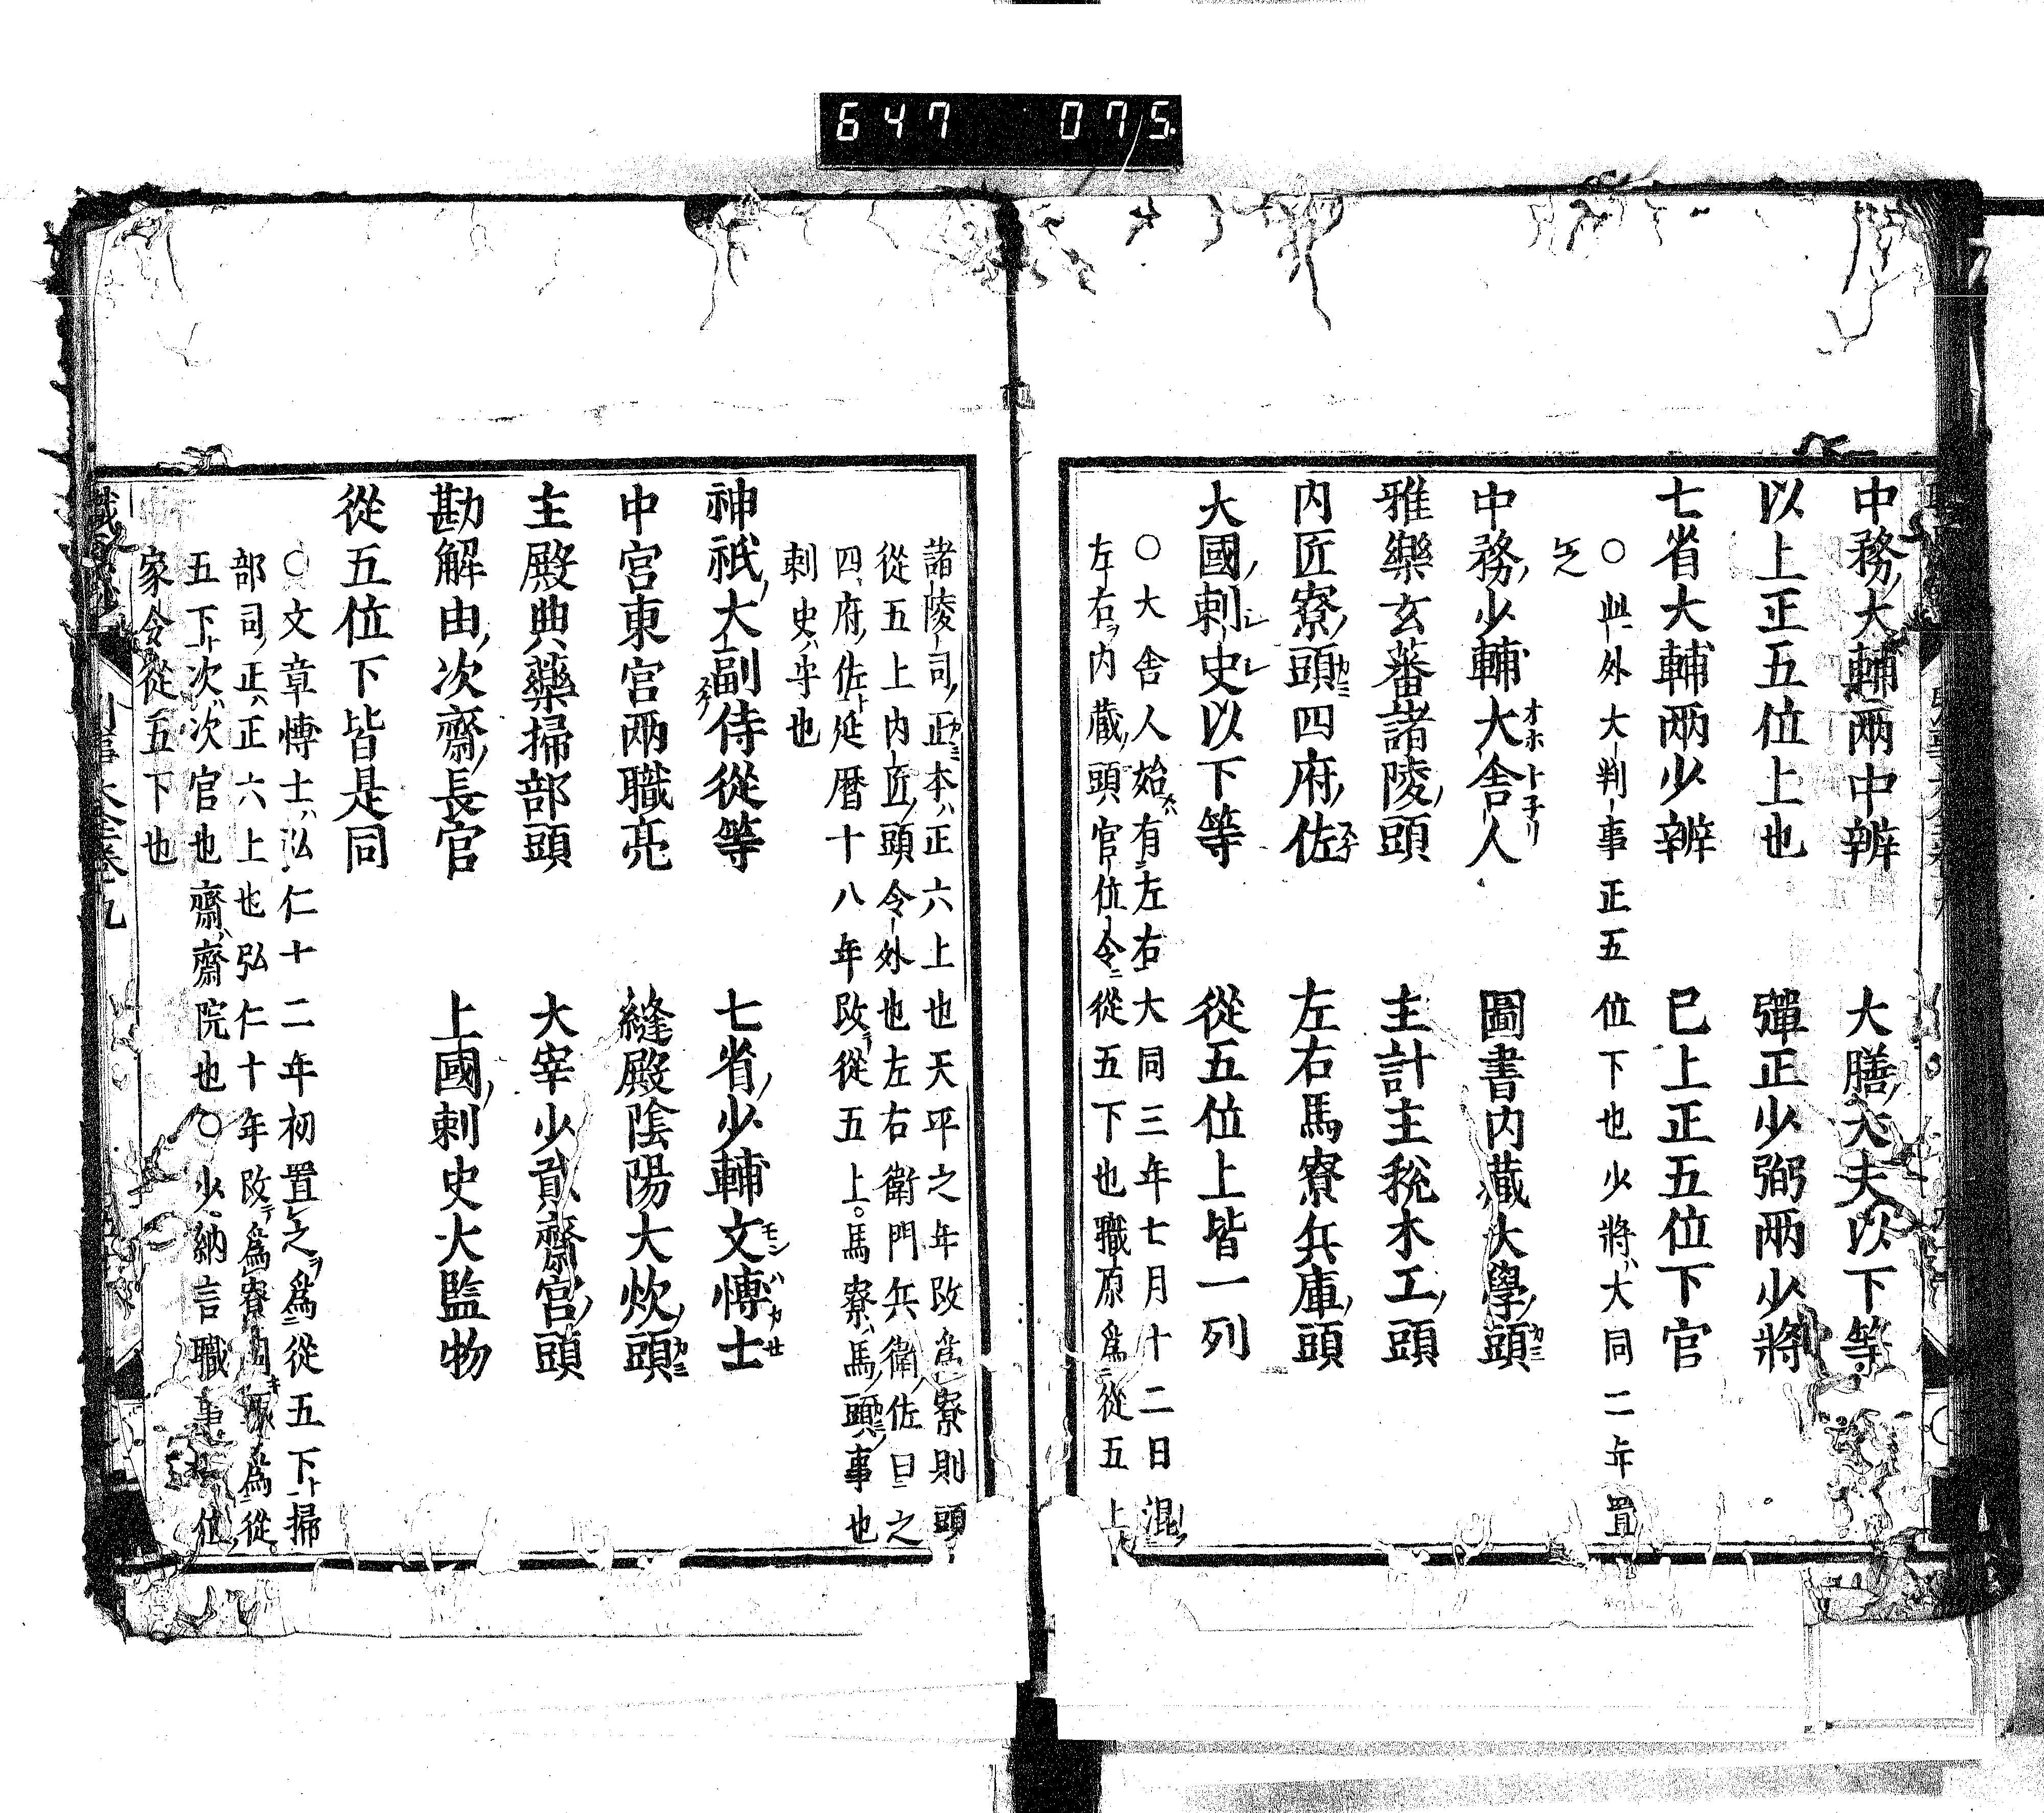 647 075
中務大輔兩中辨 大膳大夫以下等
以上正五位上也 彈正少弼兩少將
七省大輔兩少辨 已上正五位下官
○此外大判事正五位下也少將ハ大同二年置
之
中務少輔大舎人 圖書内藏大學頭
雅樂玄蕃諸陵頭 主計主税木工頭
内匠寮頭四府佐 左右馬寮兵庫頭
大國刺史以下等 從五位上皆一列
○大舎人始有左右大同三年七月十二日混
左右内藏頭官位令從五下也職原爲從五上
諸陵司正本ハ正六上也天平之年改爲寮則頭
從五上内匠頭令外也左右衛門兵衛佐曰之
四府佐ト延暦十八年改從五上。馬寮ハ馬頭事也
刺史ハ守也
神祇大副侍從等 七省少輔文博士
中宮東宮兩職亮 縫殿陰陽大炊頭
主殿典藥掃部頭 大宰少貳齋宮頭
勘解由次齋長官 上國刺史大監物
從五位下皆是同
○文章博士ハ弘仁十二年初置之爲從五下ト掃
部司正ハ正六上也弘仁十年改テ爲寮爲從
五下ト次ハ次官也齋ハ齋院也○少納言職事位
家令從五下也